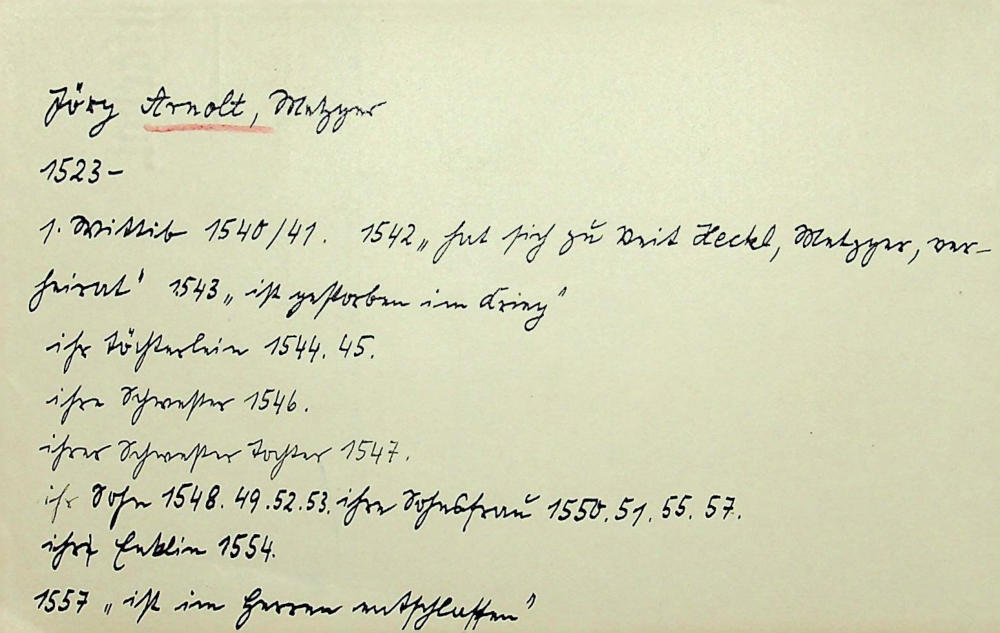 Jörg Arnolt, Metzger
1523–
1. Wittib 1540/41. 1542 „hat sich zu Veit Heckl, Metzger, ver-
heirat" 1543 „ist gestorben im Krieg"
ihr Töchterlein 1544. 45.
ihre Schwester 1546.
ihrer Schwester Tochter 1547.
ihr Sohn 1548. 49. 52. 53. ihre Sohnsfrau 1550. 51. 55. 57.
ihr Enklin 1554.
1557 „ist im Herren entschlaffen"